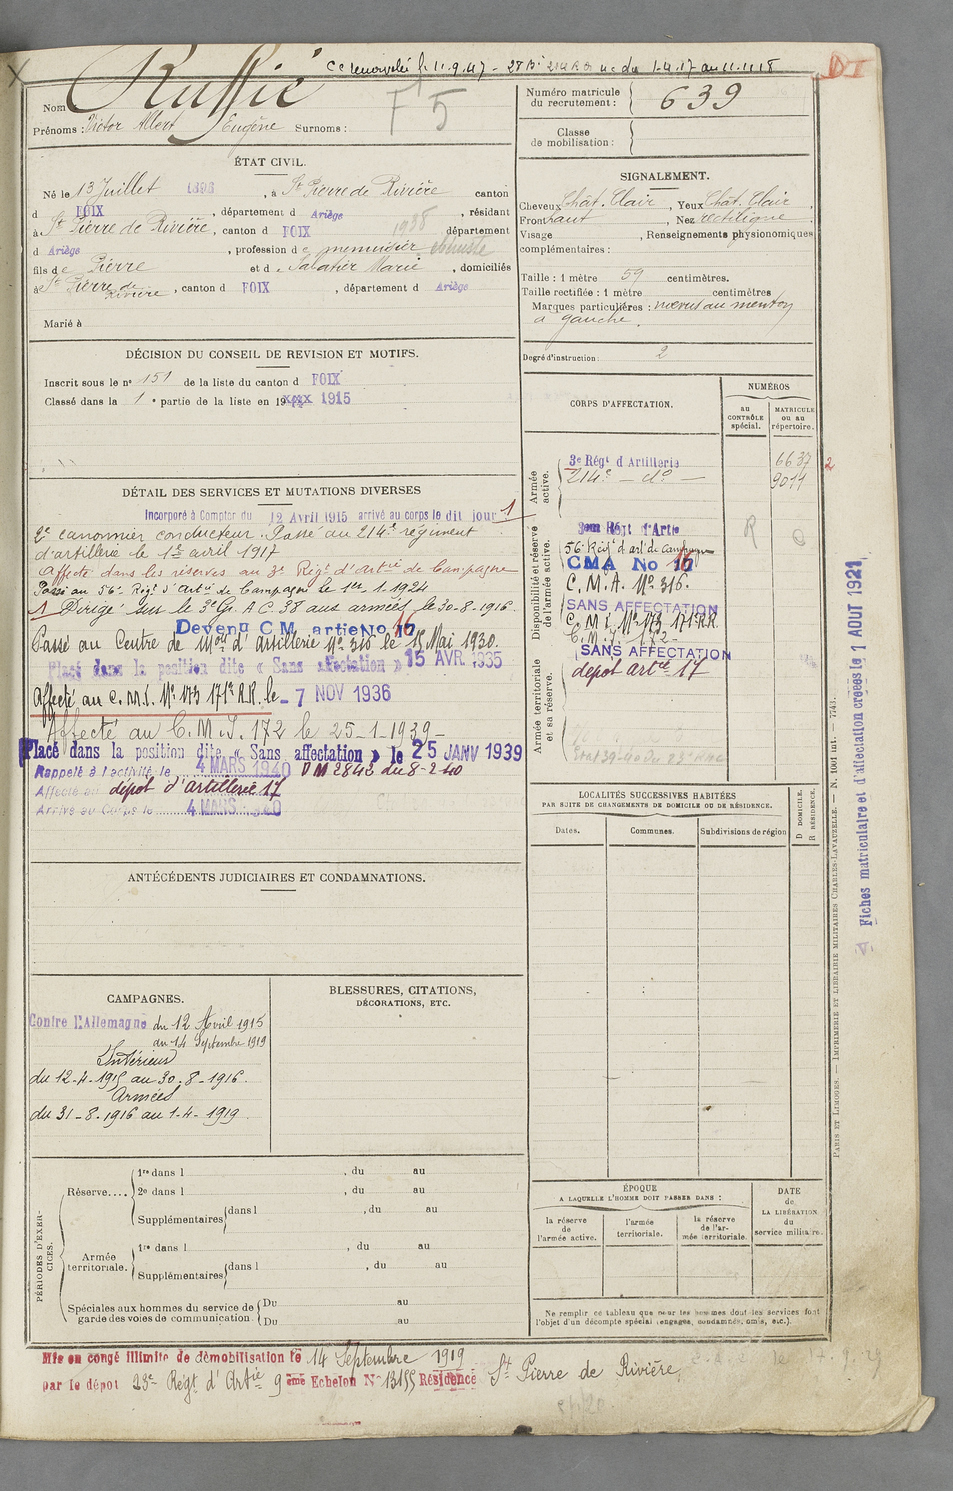 Cc renouvelée le 11.9.47 - 28 Bi 214 RA uc du 1-4.17 au 11.11.18
DI
Nom Ruffié
F 5
Prénoms : Victor Albert Eugène Surnoms :
Numéro matricule du recrutement : 639
Classe de mobilisation :
ÉTAT CIVIL.
Né le 13 Juillet 1896, à St Pierre de Rivière canton
d FOIX, département d Ariège, résidant
à St Pierre de Rivière, canton d FOIX 1938 département
d Ariège, profession de menuisier
fils de Pierre et d. Sabatier Marie, domiciliés
à St Pierre de Rivière, canton d FOIX, département d Ariège
Marié à
SIGNALEMENT.
Cheveux Chât. Clair, Yeux Chât. Clair,
Front haut, Nez rectiligne
Visage , Renseignements physionomiques
complémentaires :
Taille : 1 mètre 59 centimètres.
Taille rectifiée : 1 mètre centimètres
Marques particulières : nævus au menton
à gauche.
Degré d'instruction : 2
DÉCISION DU CONSEIL DE REVISION ET MOTIFS.
Inscrit sous le n° 151 de la liste du canton d FOIX
Classé dans la 1e partie de la liste en 19 1915
CORPS D'AFFECTATION.
NUMÉROS
au CONTRÔLE spécial.
MATRICULE ou au répertoire.
Armée active.
3e Régt d Artillerie 6637
214e - do - 9011
2
Disponibilité et réserve de l'armée active.
3em Régt d'Artie
56e Régt d'art de Campagne
CMA No 16
C.M.A. No 316.
SANS AFFECTATION
C.M.I. No 173 171e R.R.
C.M.I. 172-
SANS AFFECTATION
dépot artie 17
R
C
Armée territoriale et sa réserve.
DÉTAIL DES SERVICES ET MUTATIONS DIVERSES
Incorporé à Compter du 12 Avril 1915 arrivé au corps le dit jour 1
2e canonnier conducteur. Passé au 214e régiment
d'artillerie le 1er avril 1917
Affecté dans les réserves au 3e Régt d'Artie de Campagne
Passé au 56e Régt d'Artie de Campagne le 1er 1-1924
1 Dirigé sur le 3e Gr. A.C. 38 aux armées le 30-8-1916.
Devenu C M artie No 16
Passé au Centre de Mon d'Artillerie No 316 le 15 Mai 1930.
Placé dans la position dite « Sans affectation » 15 AVR. 1935
Affecté au C.M.I. No 173 171e R.R. le - 7 NOV 1936
Affecté au C.M.I. 172 le 25-1-1939-
Placé dans la position dite « Sans affectation » le 25 JANV 1939
Rappelé à l'activité le 4 MARS 1940 DM 2842 du 8-2-40
Affecté au dépot d'artillerie 17
Arrivé au Corps le 4 MARS 1940
LOCALITÉS SUCCESSIVES HABITÉES
PAR SUITE DE CHANGEMENTS DE DOMICILE OU DE RÉSIDENCE.
Dates. Communes. Subdivisions de région
D DOMICILE.
R RÉSIDENCE.
ANTÉCÉDENTS JUDICIAIRES ET CONDAMNATIONS.
CAMPAGNES.
Contre l'Allemagne du 12 Avril 1915
du 14 Septembre 1919
Intérieur
du 12-4-1915 au 30-8-1916.
Armées
du 31-8-1916 au 1-4-1919
BLESSURES, CITATIONS,
DÉCORATIONS, ETC.
PÉRIODES D'EXERCICES.
Réserve....
1re dans l , du au
2e dans l , du au
Supplémentaires dans l , du au
Armée territoriale.
1re dans l , du au
Supplémentaires dans l , du au
Spéciales aux hommes du service de garde des voies de communication.
Du au
Du au
ÉPOQUE
A LAQUELLE L'HOMME DOIT PASSER DANS :
la réserve de l'armée active.
l'armée territoriale.
la réserve de l'armée territoriale.
DATE de LA LIBÉRATION du service militaire.
Ne remplir ce tableau que pour les hommes dont les services font
l'objet d'un décompte spécial (engagés, condamnés, omis, etc.).
Mis en congé illimité de démobilisation le 14 Septembre 1919
par le dépot 23e Régt d'Artie 9 ème Echelon No 13155 Résidence St Pierre de Rivière
Fiches matriculaire et d'affectation créées le 1 AOUT 1921
PARIS ET LIMOGES. — IMPRIMERIE ET LIBRAIRIE MILITAIRES CHARLES-LAVAUZELLE. — N. 1001 int. — 7743.